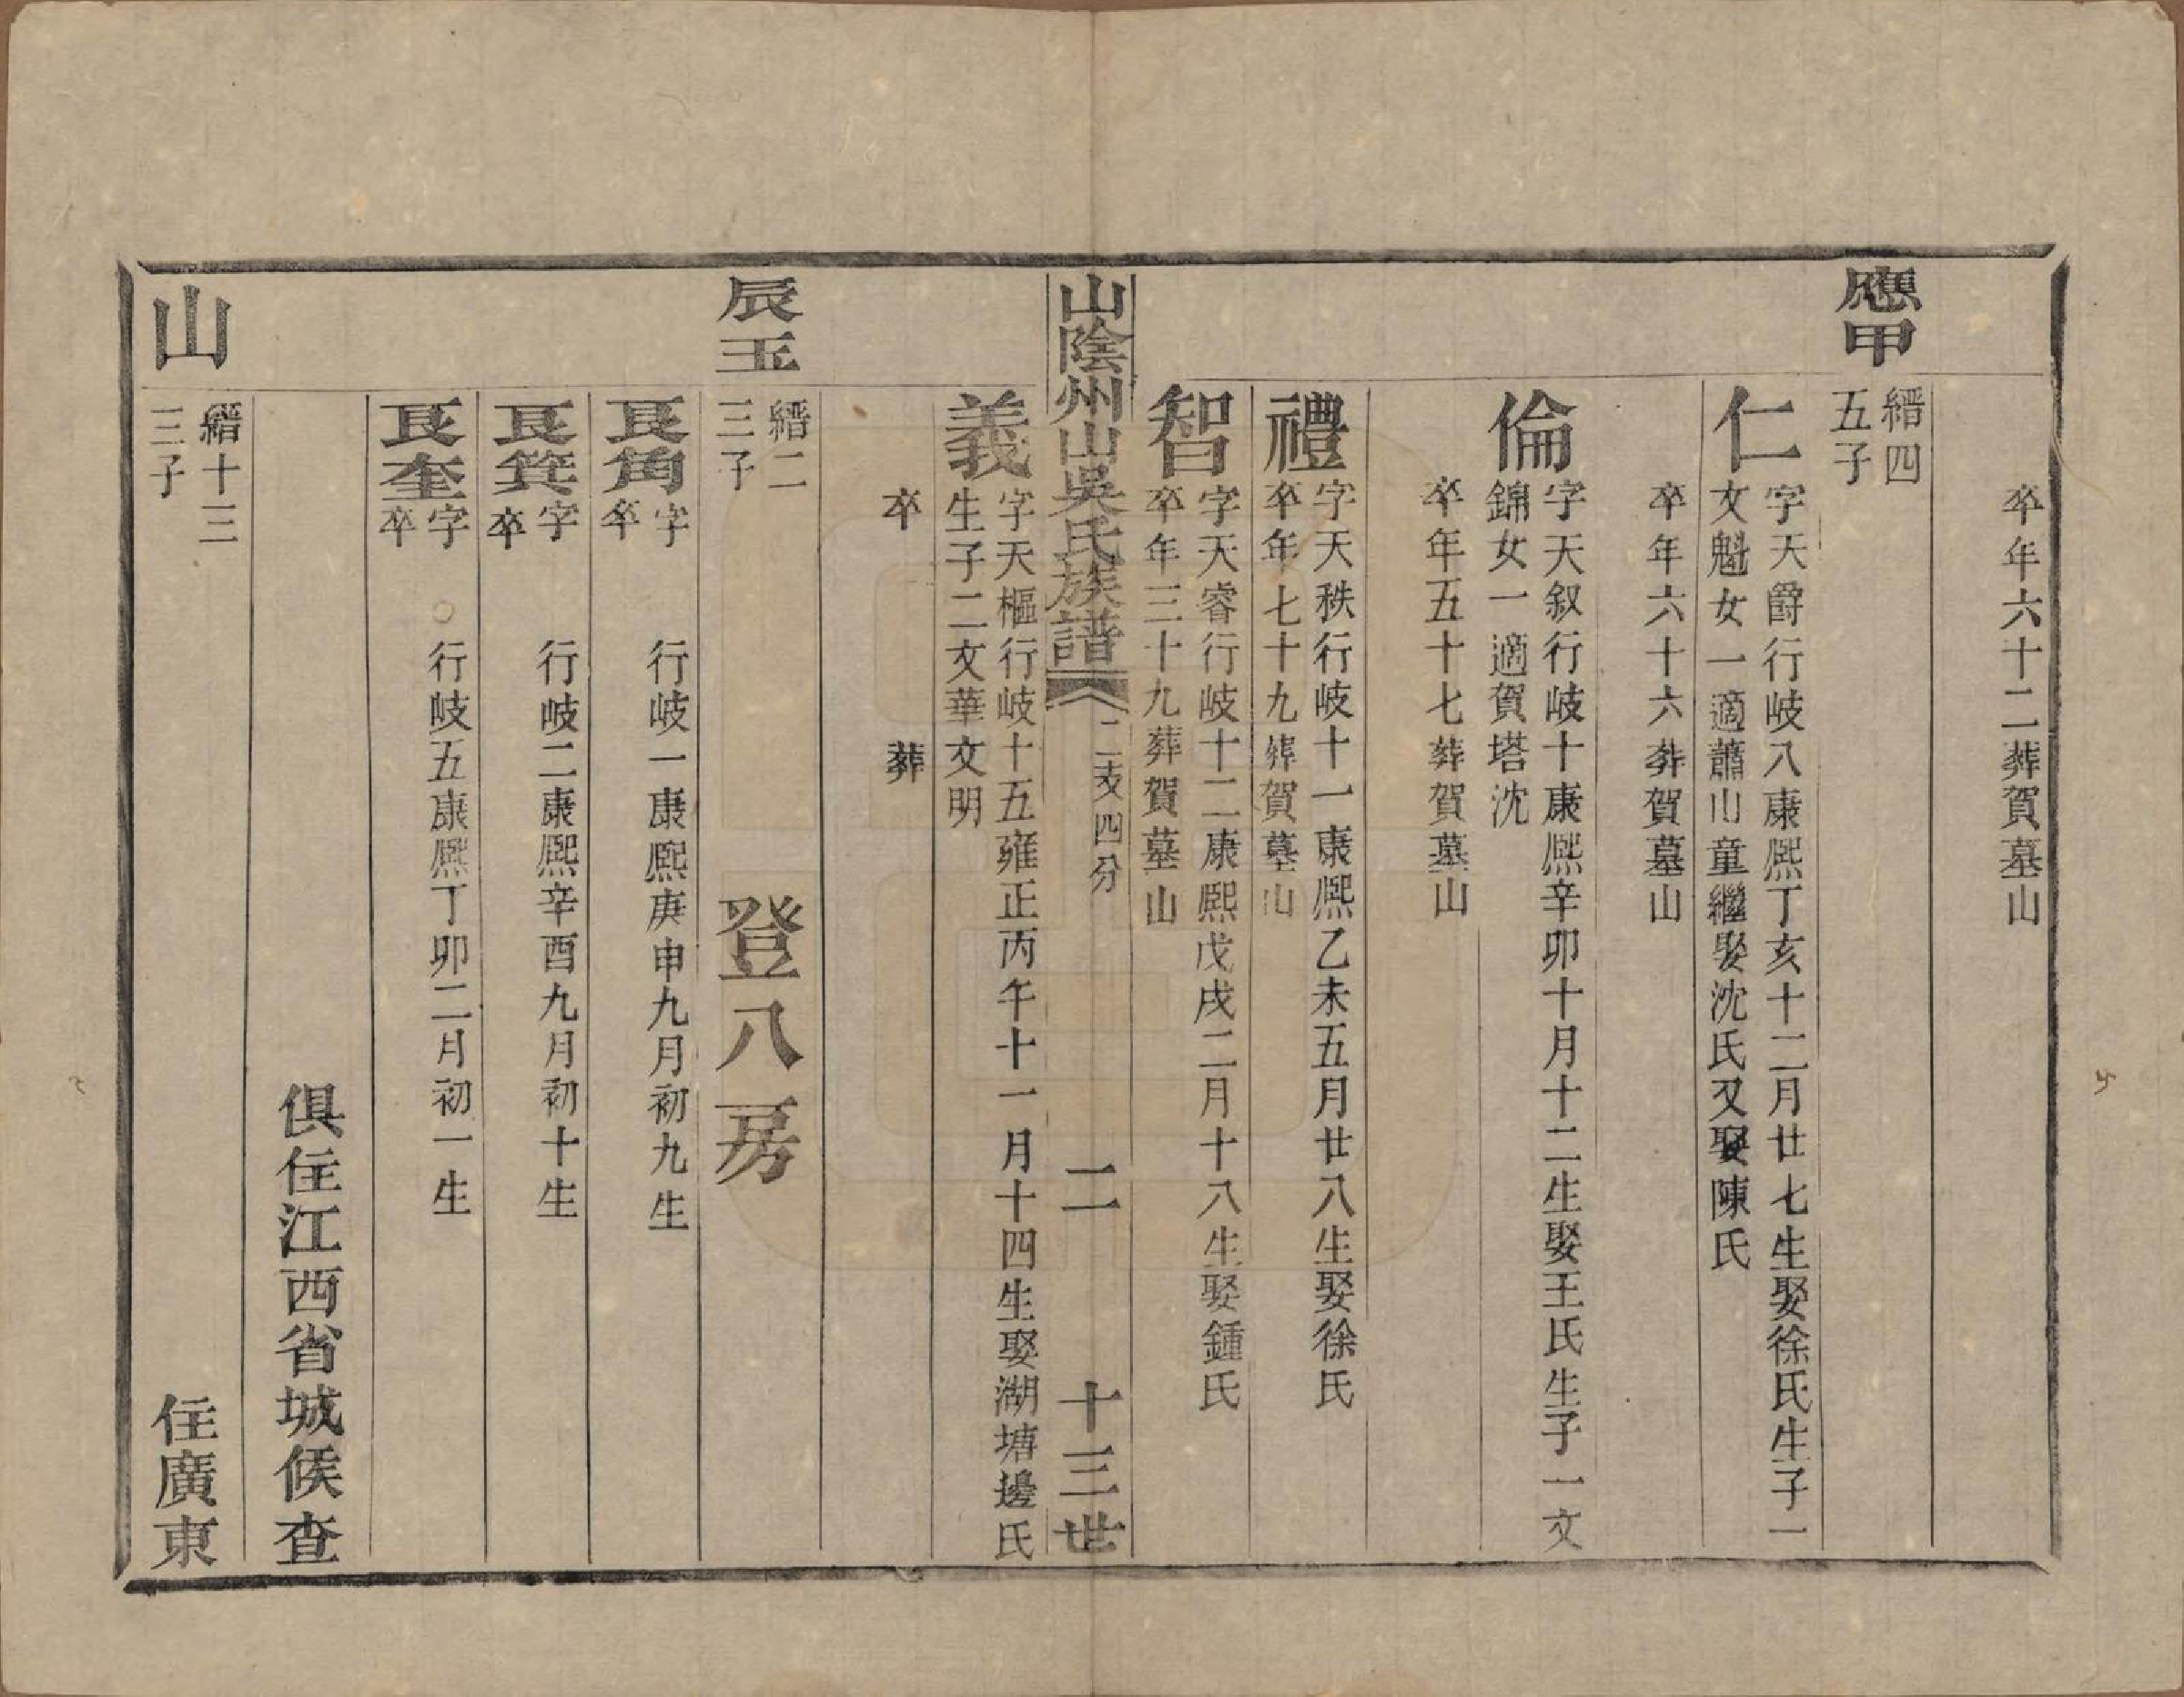 卒年六十二葬賀墓山
應甲
縉四
五子
仁
字天爵行岐八康熙丁亥十二月廿七生娶徐氏生子一
文魁女一適蕭山童繼娶沈氏又娶陳氏
卒年六十六葬賀墓山
倫
字天叙行岐十康熙辛卯十月十二生娶王氏生子一文
錦女一適賀塔沈
卒年五十七葬賀墓山
禮
字天秩行岐十一康熙乙未五月廿八生娶徐氏
卒年七十九葬賀墓山
智
字天睿行岐十二康熙戊戌二月十八生娶鍾氏
卒年三十九葬賀墓山
山陰州山吳氏族譜
二支四分
二
十三世
義
字天樞行岐十五雍正丙午十一月十四生娶湖塘邊氏
生子二文華文明
卒 葬
辰玉
縉二
三子
登八房
艮角
字 行岐一康熙庚申九月初九生
卒
艮箕
字 行岐二康熙辛酉九月初十生
卒
艮奎
字 行岐五康熙丁卯二月初一生
卒
俱住江西省城候查
山
縉十三
三子
住廣東